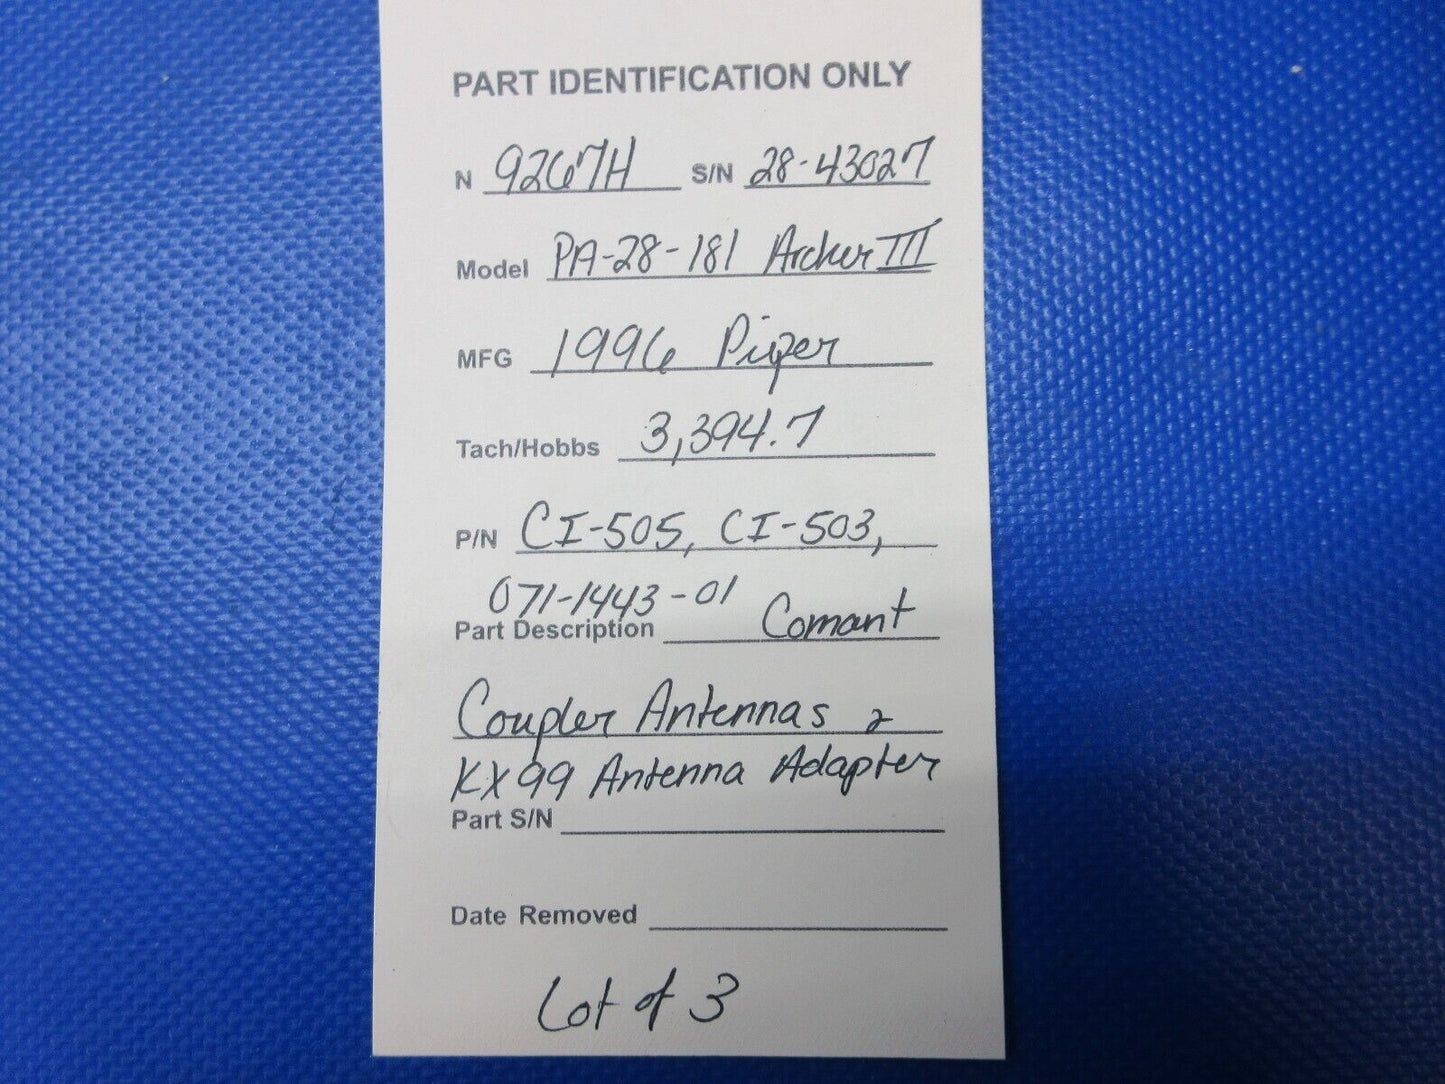 PART IDENTIFICATION ONLY
N 9267H S/N 28-43027
Model PA-28-181 Archer III
MFG 1996 Piper
Tach/Hobbs 3,394.7
P/N CI-505, CI-503,
071-1443-01
Part Description Comant
Coupler Antennas &
KX99 Antenna Adapter
Part S/N
Date Removed
Lot of 3